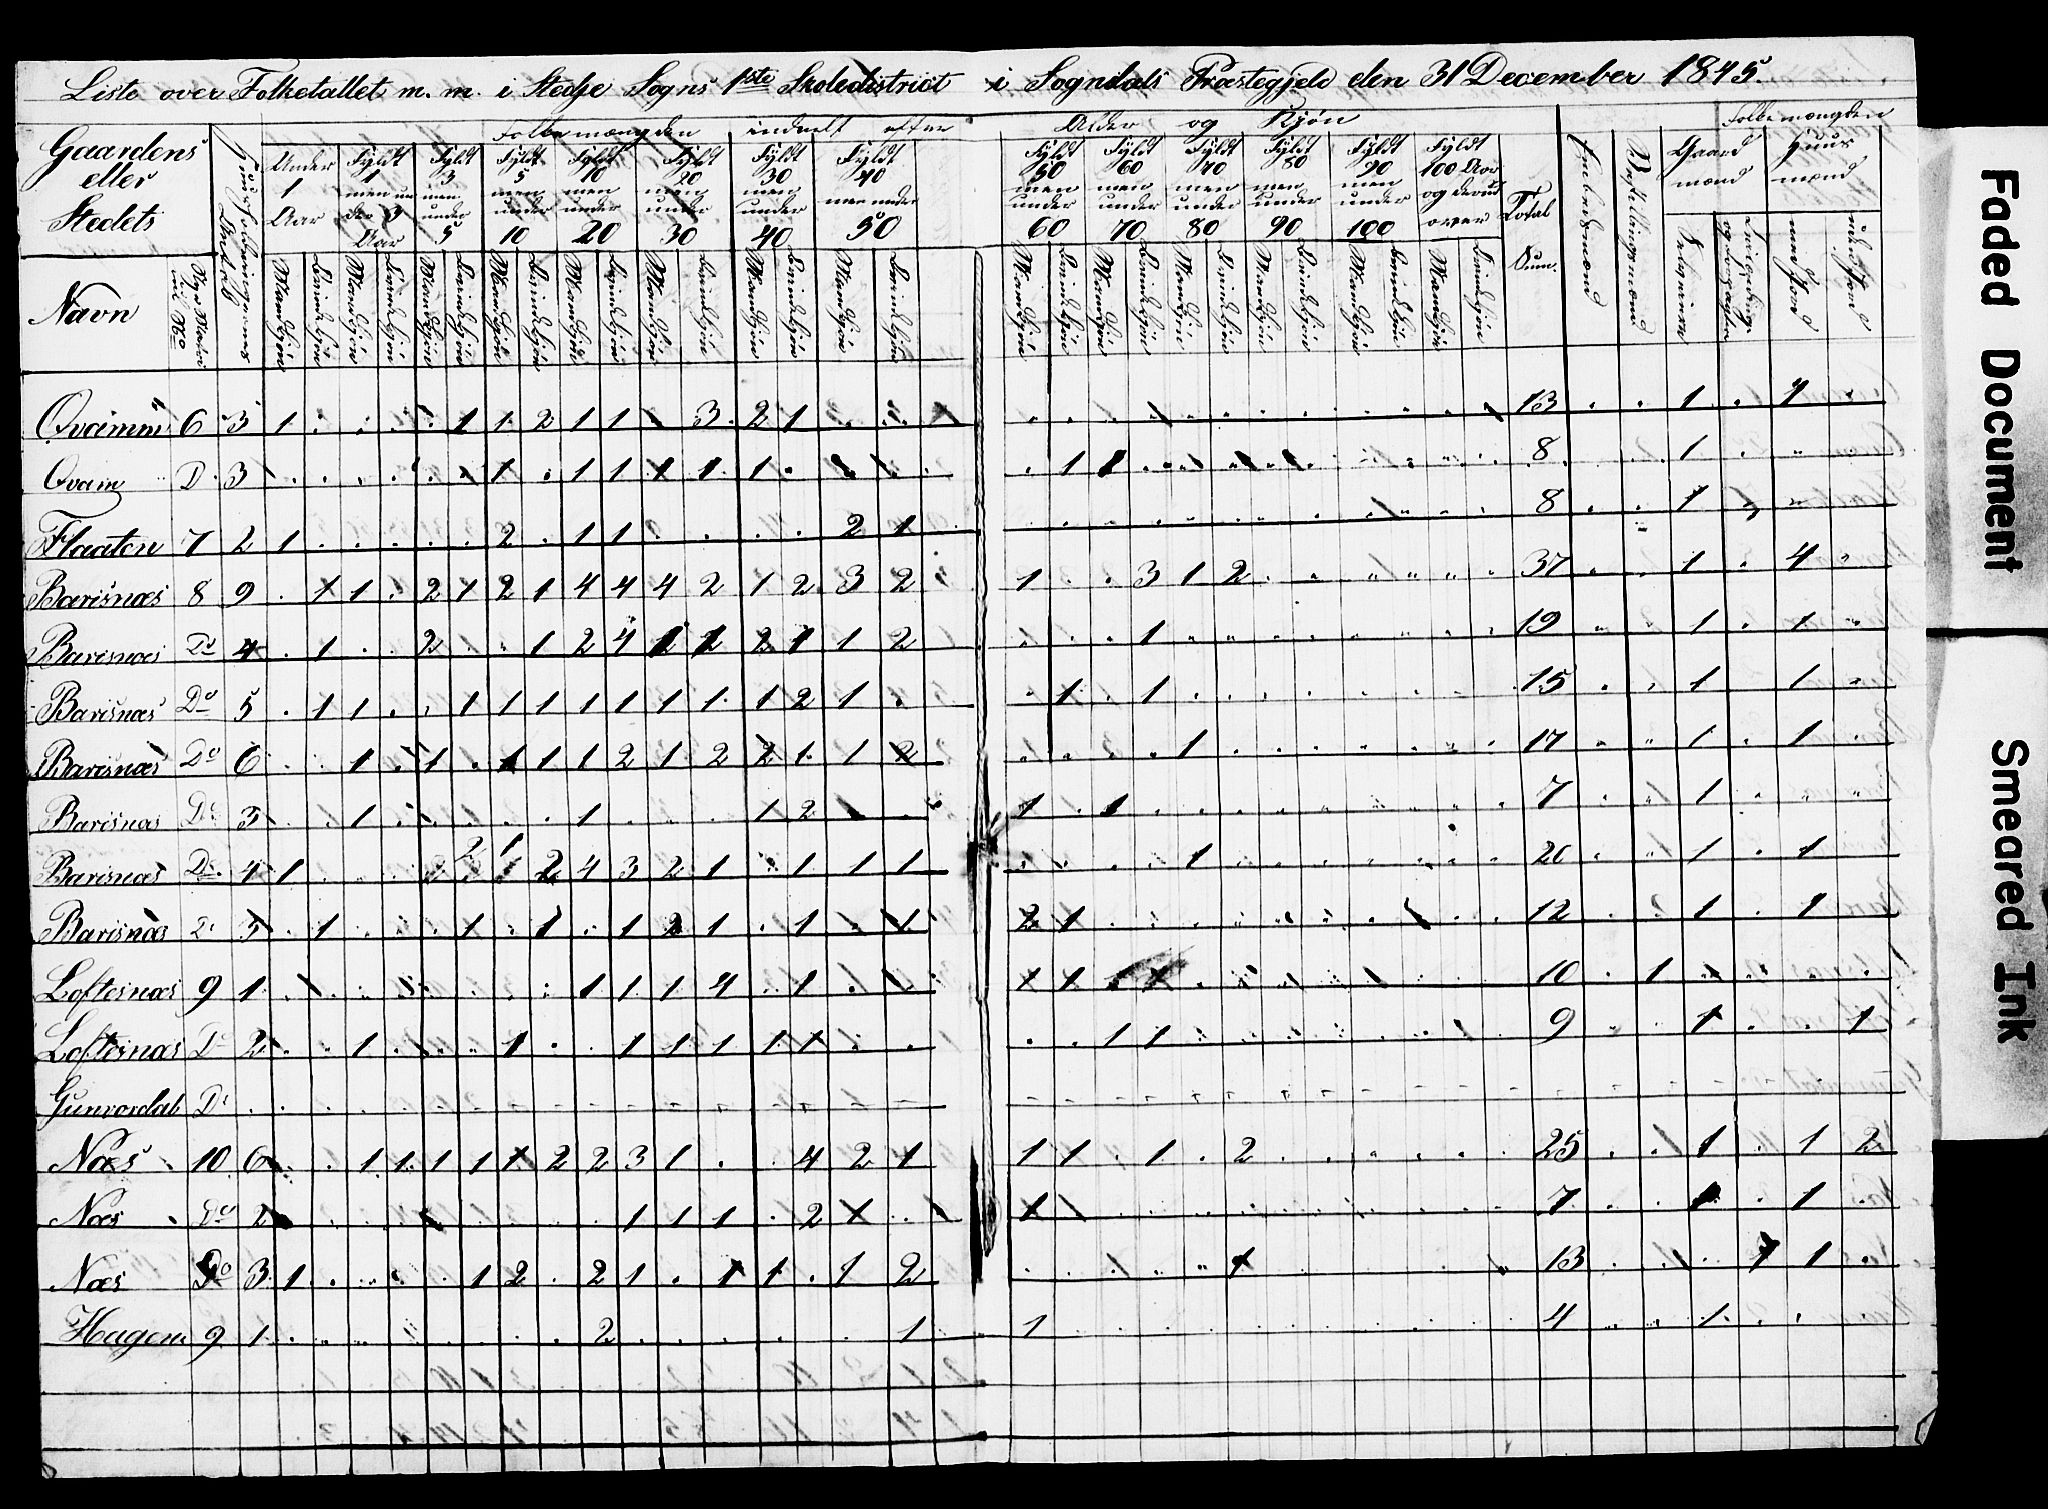 Liste over Folketallet m. m. i Stedje Sogns 1ste Skoledistrict i Sogndals Præstegjeld den 31 December 1845.
Folkemængden inddelt efter Alder og Kjøn Folkemængden
Gaardens eller Stedets
Navn
Under 1 Aar
Fyldt 1 men under 3 Aar
Fyldt 3 men under 5
Fyldt 5 men under 10
Fyldt 10 men under 20
Fyldt 20 men under 30
Fyldt 30 men under 40
Fyldt 40 men under 50
Fyldt 50 men under 60
Fyldt 60 men under 70
Fyldt 70 men under 80
Fyldt 80 men under 90
Fyldt 90 men under 100
Fyldt 100 Aar og derudover
Total Sum.
Embedsmænd
Bestillingsmænd
Gaardmænd
Huusmænd
Selveiere
med Jord
uden Jord
Mandkjøn Qvindekjøn
Qvamm 6 3 1 . . . . 1 1 2 1 1 . 3 2 1 . . 13 . . 1 . 1 .
Qvam D. 3 . . . . . . 1 . 1 1 1 1 1 . . . . 1 1 . . . 8 . . 1 . .
Flaaten 7 2 1 . . . . . 2 . 1 1 . . . . 2 1 8 . . 1 .
Barisnæs 8 9 . 1 1 . 2 1 2 1 4 4 4 2 1 2 3 2 1 . . 3 1 2 37 . . 1 . 4 .
Barisnæs Do 4 . 1 . . 2 . . 1 2 4 1 2 2 1 1 2 . . . 1 19 . . 1 . 1 .
Barisnæs Do 5 . 1 1 . . 1 1 1 1 1 1 1 1 2 1 . . 1 . 1 15 . . 1 . 1 .
Barisnæs Do 6 . . 1 . 1 . 1 1 1 2 1 2 2 1 1 2 . . . . 1 17 . . 1 . 1 .
Barisnæs Do 3 . . 1 . . . . . 1 . . . 1 2 . . 1 . 1 7 . . 1 . .
Barisnæs Do 4 1 . . . 2 1 2 4 3 2 1 . 1 1 1 . . . . 1 20 . . 1 . 1
Barisnæs Do 3 . 1 . . . 1 . 1 . 1 2 1 . 1 . 1 2 1 12 . . 1 . 1
Loftesnæs 9 1 . . . . . . . . 1 1 1 4 . 1 . . 10 . 1
Loftesnæs Do 2 . . 1 . . . 1 . . 1 1 1 1 1 . . . . 1 1 9 . . 1 . . 1
Gunvordal Do
Næs 10 6 . . 1 1 1 1 1 2 2 3 1 . . 4 2 1 1 1 . 1 . 2 25 . . 1 . 1 2
Næs Do 2 . . . . . . . . . 1 1 1 . 2 1 . 1 7 . . 1 . 1 .
Næs Do 3 1 . . . . 1 2 . 2 1 . 1 1 . 1 2 . . . . . 1 13 . . . 1 1 .
Hagen 9 1 . . . . . . . . 2 . . . . . . 1 1 4 . . 1 . .
Faded Document
Smeared Ink